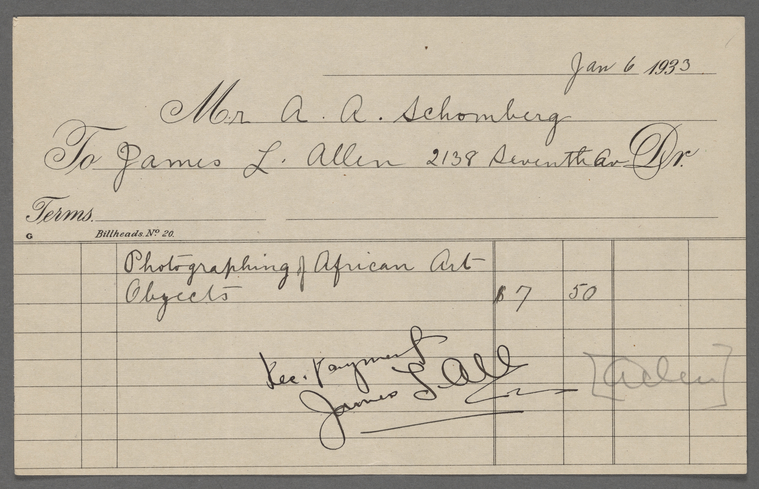 Jan 6 1933
Mr A. A. Schomberg
To James L. Allen 2138 Seventh Av Dr.
Terms.
G Billheads. No 20.
Photographing of African Art
Objects $7 50
Rec. Payment
James L Allen [Allen]